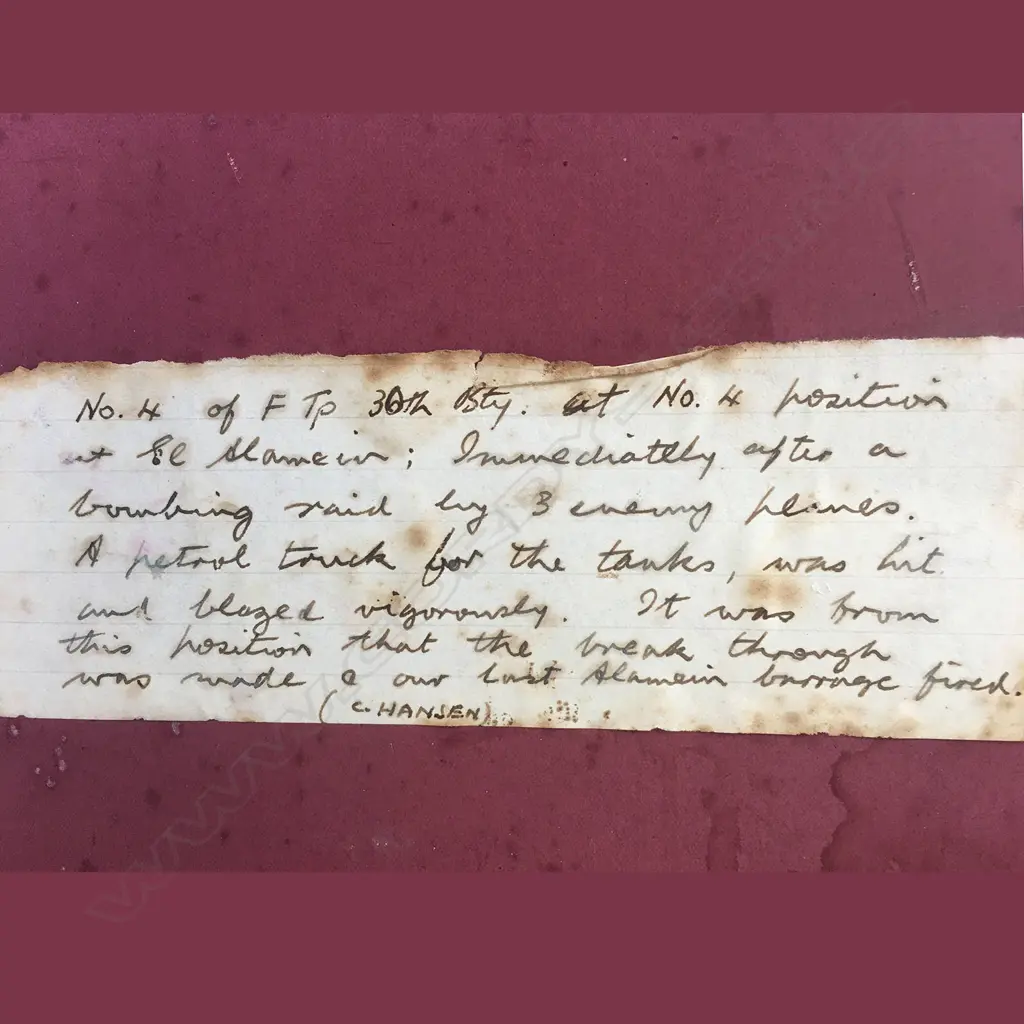 No. 4 of F Tp 30th Bty. at No. 4 position
at El Alamein; Immediatlly after a
bombing raid by 3 enemy planes.
A petrol truck for the tanks, was hit
and blazed vigorously. It was from
this position that the break through
was made & our last Alamein barrage fired.
(C. HANSEN)